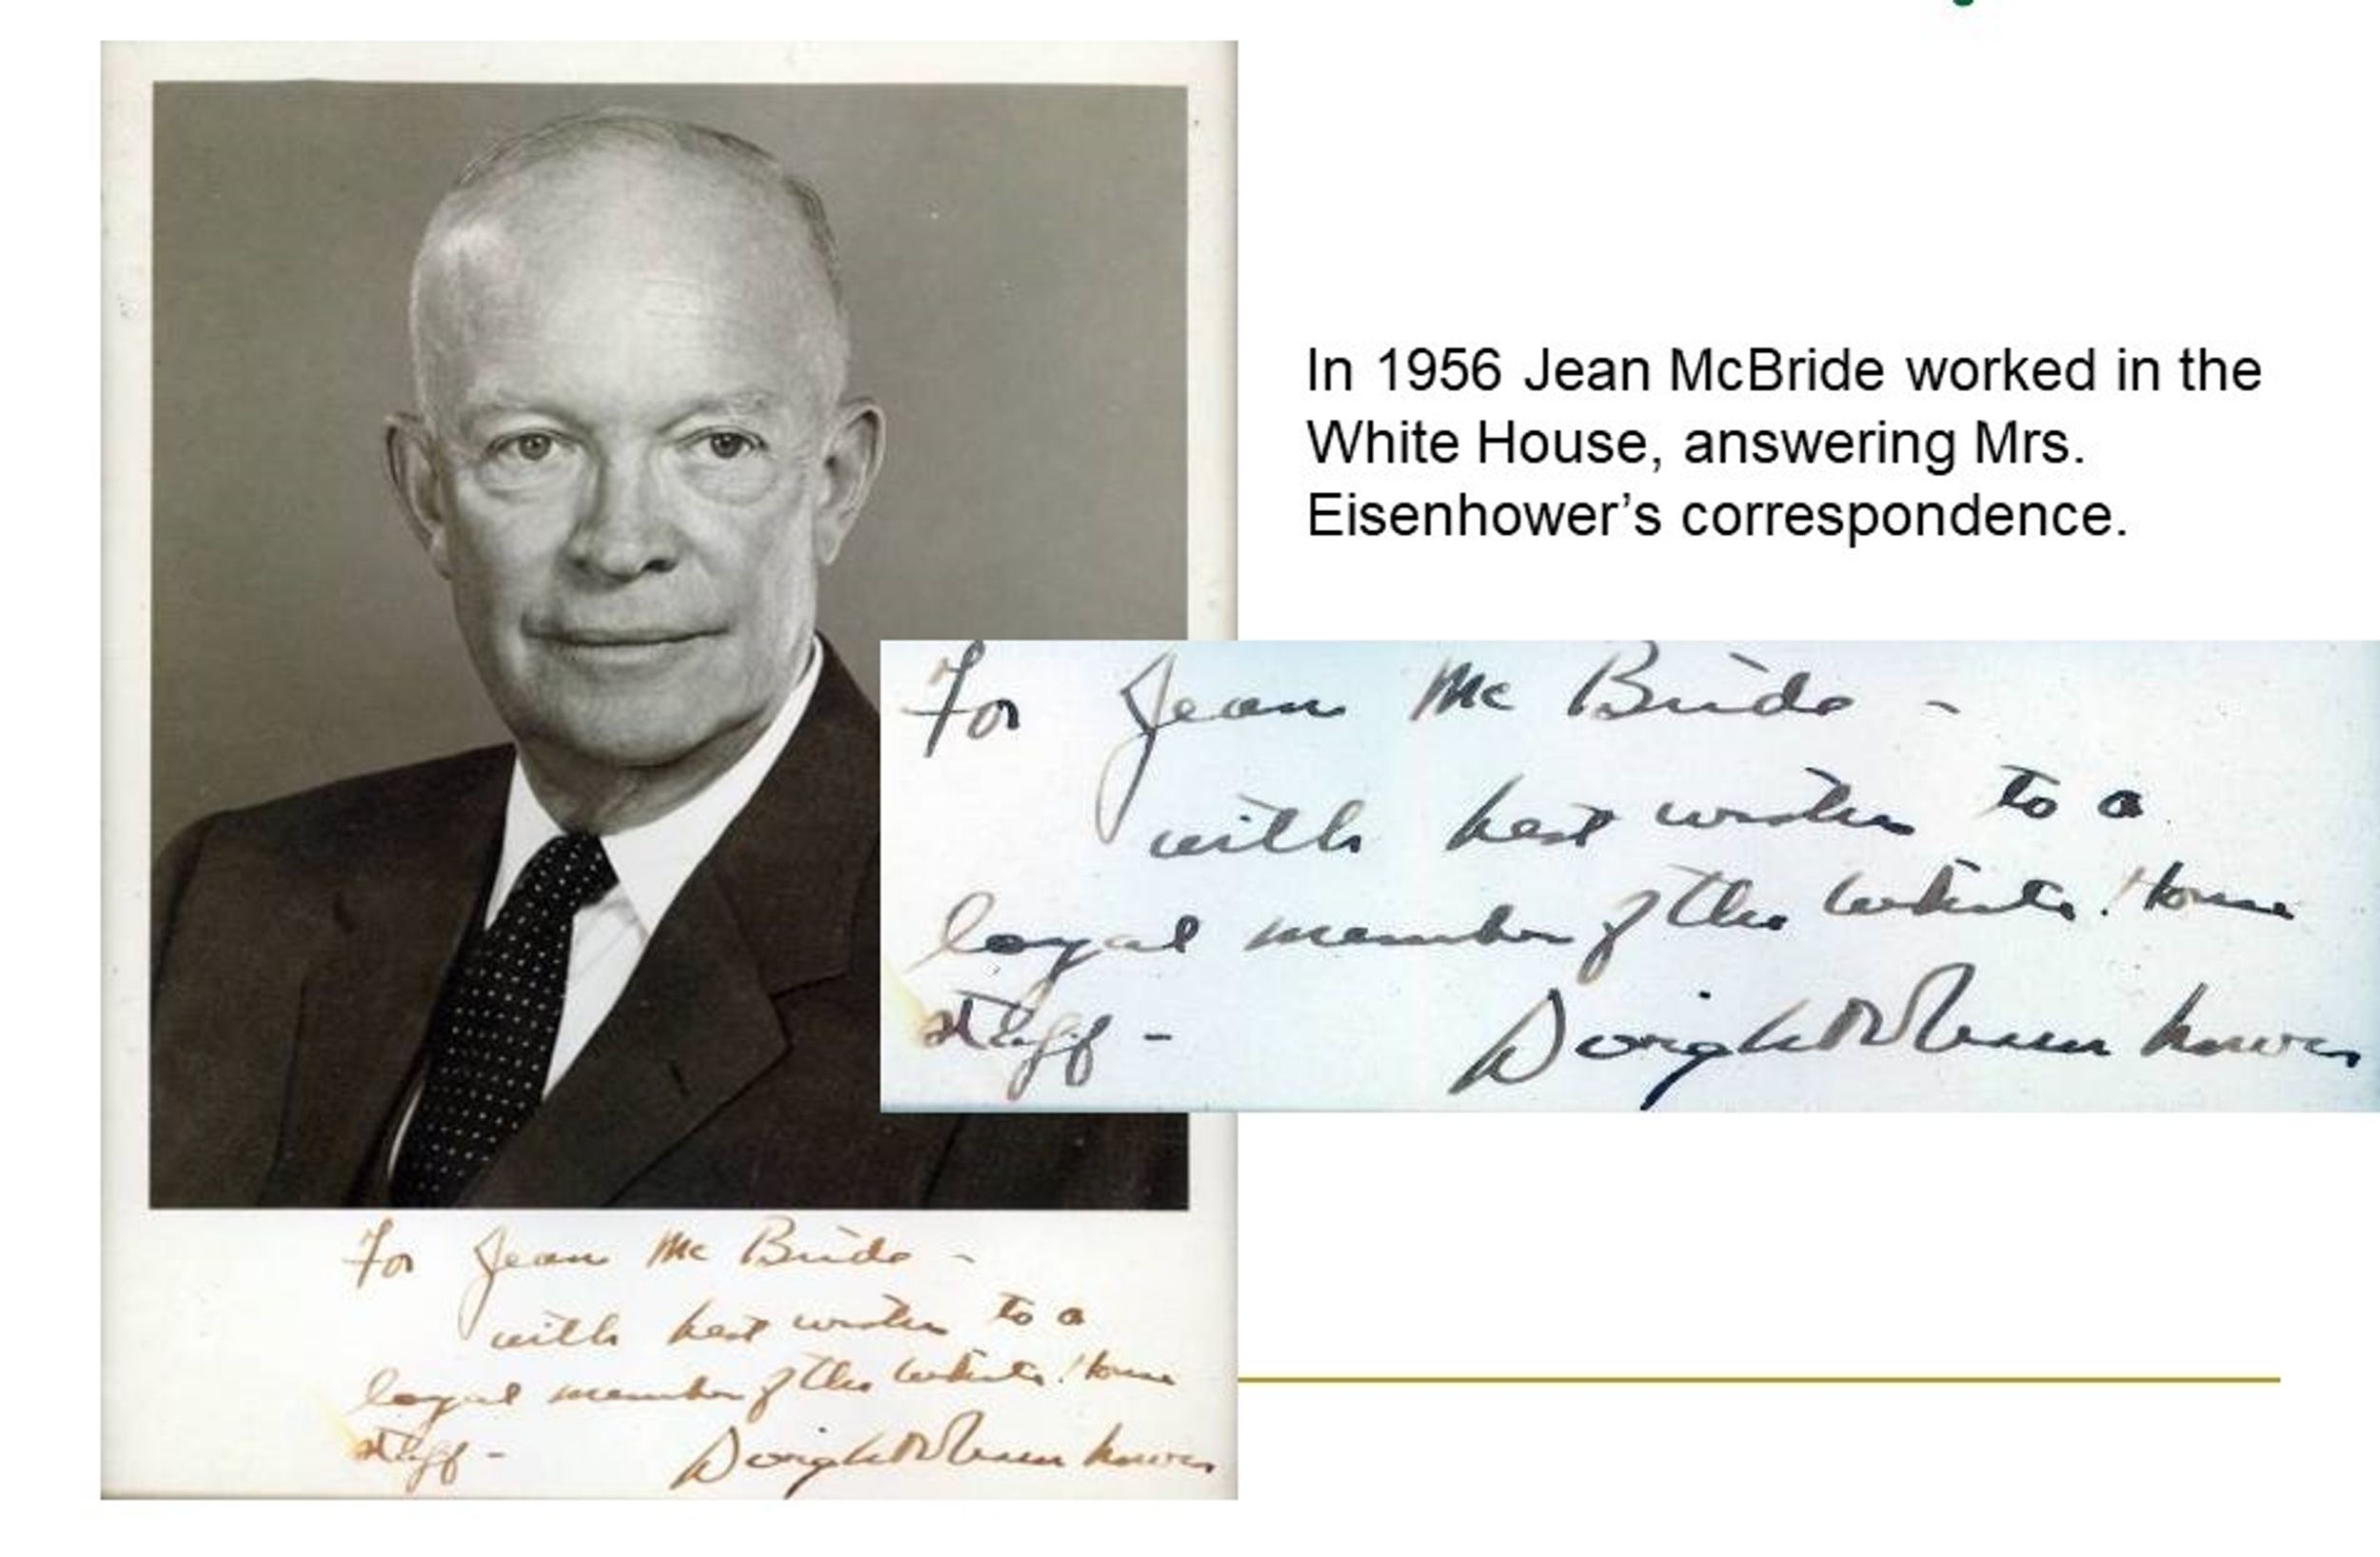 In 1956 Jean McBride worked in the
White House, answering Mrs.
Eisenhower's correspondence.
For Jean McBride -
with best wishes to a
loyal member of the White House
staff -
Dwight D Eisenhower
For Jean McBride -
with best wishes to a
loyal member of the White House
staff -
Dwight D Eisenhower